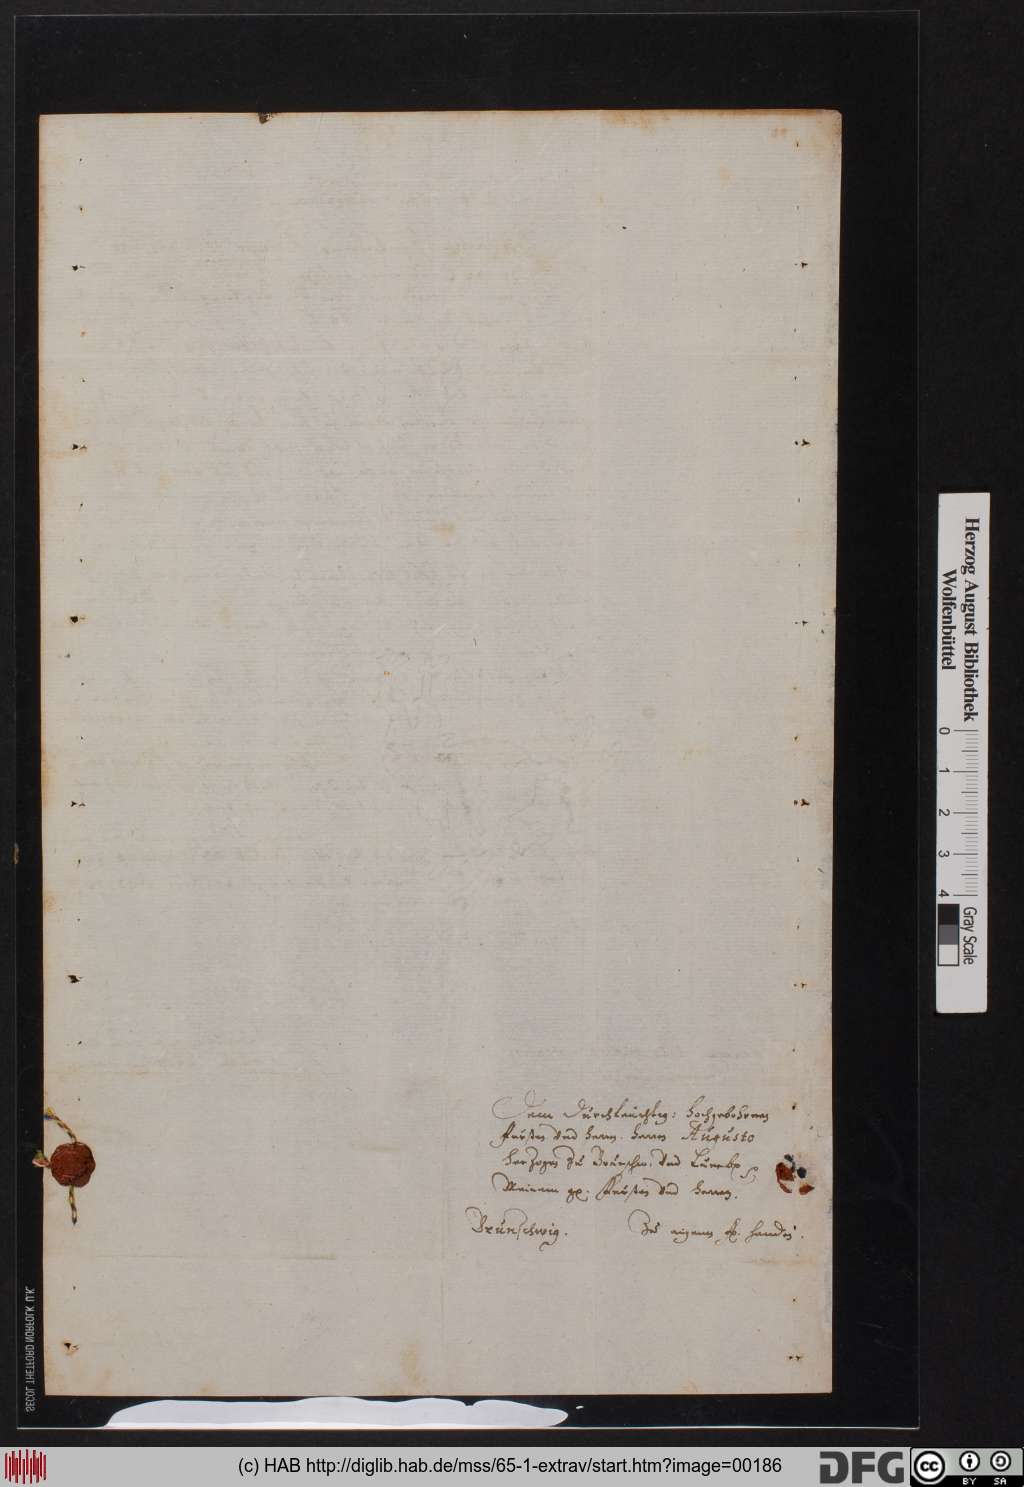 Dem Durchleuchtig: Hochgebohrnen
Fürsten Vnd herrn. herrn Augusto
Herzogen zu Braunschw. Vnd Luneb.
Meinem gn: Fürsten Vnd herren.
Brunschwig. Zu eigenen f. handen.
Herzog August Bibliothek
Wolfenbüttel
0 1 2 3 4
Gray Scale
SECOL THETFORD NORFOLK U.K.
(c) HAB http://diglib.hab.de/mss/65-1-extrav/start.htm?image=00186
DFG
cc BY SA